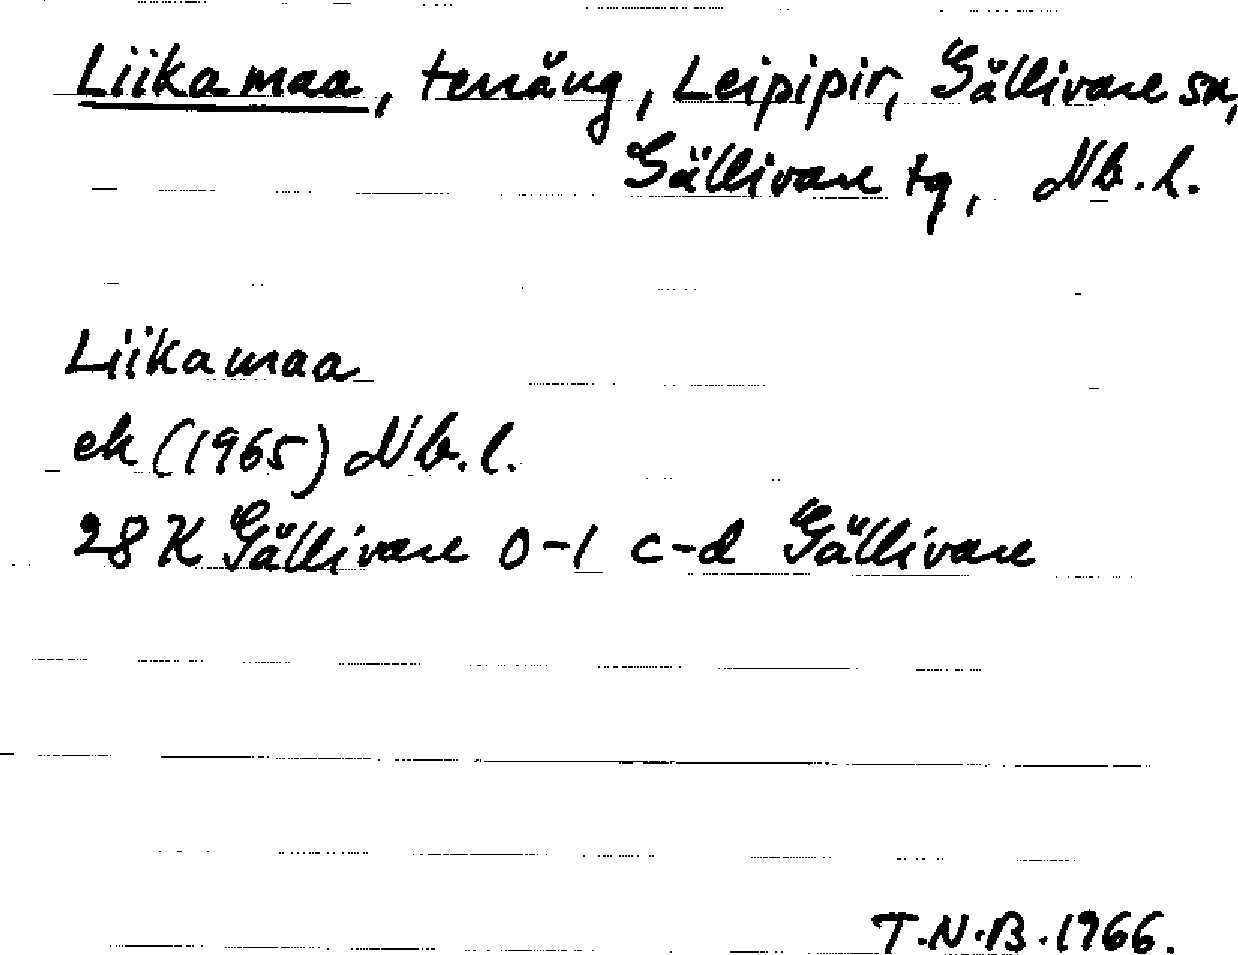 Liikamaa, terräng, Leipipir, Gällivare sn,
Gällivare tg, Nb. l.
Liikamaa
ek (1965) Nb. l.
28 K Gällivare 0-1 c-d Gällivare
T.N.B. 1966.